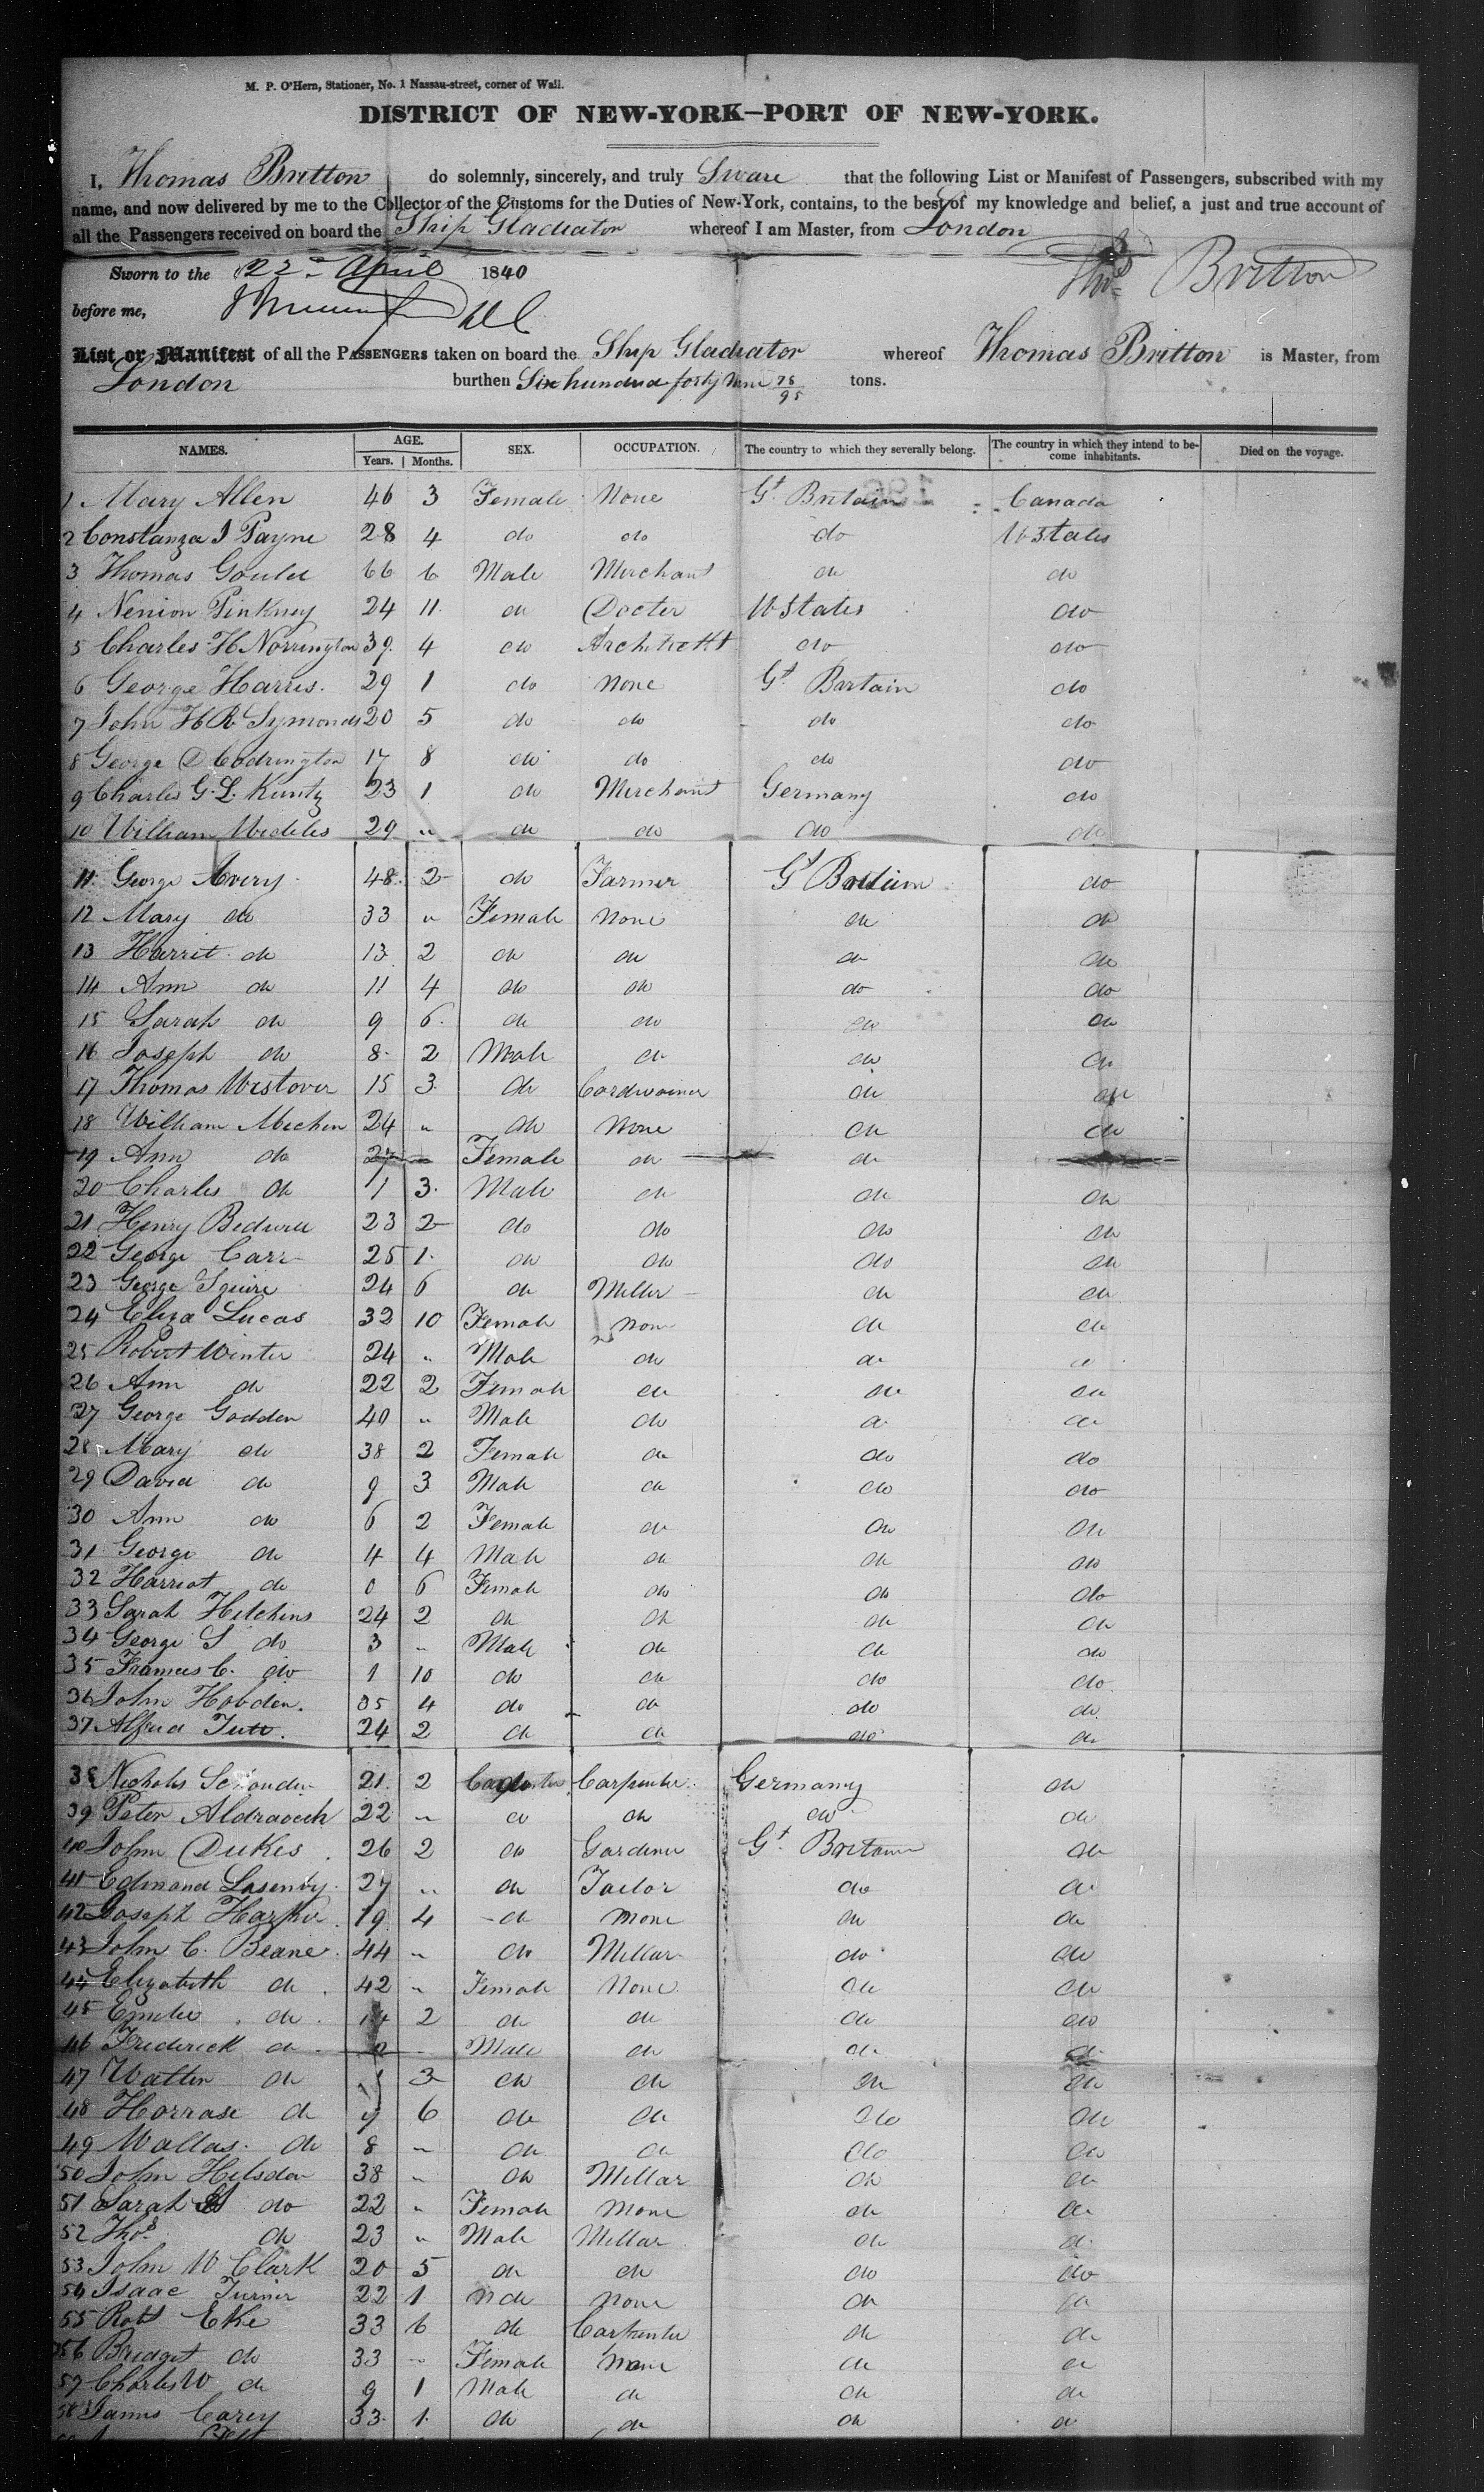 M. P. O'Hern, Stationer, No. 1 Nassau-street, corner of Wall.
DISTRICT OF NEW-YORK—PORT OF NEW-YORK.
I, Thomas Britton do solemnly, sincerely, and truly Sware that the following List or Manifest of Passengers, subscribed with my
name, and now delivered by me to the Collector of the Customs for the Duties of New-York, contains, to the best of my knowledge and belief, a just and true account of
all the Passengers received on board the Ship Gladiator whereof I am Master, from London
Sworn to the 22nd April 1840 Thos Britton
before me,
List or Manifest of all the PASSENGERS taken on board the Ship Gladiator whereof Thomas Britton is Master, from
London burthen Six hundred forty nine 78/95 tons.
NAMES. AGE. SEX. OCCUPATION. The country to which they severally belong. The country in which they intend to become inhabitants. Died on the voyage.
Years. Months.
1 Mary Allen 46 3 Female None Gt Britain Canada
2 Constanza I Payne 28 4 do do do U States
3 Thomas Gould 66 6 Male Merchant do do
4 Nenion Pinkney 24 11 do Docter U States do
5 Charles H Norrington 39 4 do Architectt do do
6 George Harris. 29 1 do None Gt Britain do
7 John H R Symonds 20 5 do do do do
8 George D Codrington 17 8 do do do do
9 Charles G. L. Kuntz 23 1 do Merchant Germany do
10 William 29 " do do do do
11 George Avery 48 2 do Farmer Gt Britain do
12 Mary do 33 " Female None do do
13 Harrit do 13 2 do do do do
14 Ann do 11 4 do do do do
15 Sarah do 9 6 do do do do
16 Joseph do 8 2 Male do do do
17 Thomas Westover 15 3 do Cordwainer do do
18 William Mechen 24 " do None do do
19 Ann do 27 Female do do
20 Charles do 1 3 Male do do do
21 Henry Bedwell 23 2 do do do do
22 George Carr 25 1 do do do do
23 George Squire 24 6 do Miller do do
24 Eliza Lucas 32 10 Female None do do
25 Robert Winter 24 " Male do do do
26 Ann do 22 2 Female do do do
27 George Godden 40 " Male do do do
28 Mary do 38 2 Female do do do
29 David do 9 3 Male do do do
30 Ann do 6 2 Female do do do
31 George do 4 4 Male do do do
32 Harriot do 0 6 Female do do do
33 Sarah Hitchins 24 2 do do do do
34 George S do 3 " Male do do do
35 Frances C. do 1 10 do do do do
36 John Hobden. 35 4 do do do do
37 Alfred Tutt. 24 2 do do do do
38 Nicholas 21 2 Carpenter Germany do
39 Peter 22 " do do do do
40 John Dukes 26 2 do Gardener Gt Britain do
41 Edmond Lasenby 27 " do Tailor do do
42 Joseph Harper 19 4 do None do do
43 John C. Beane 44 " do Millar do do
44 Elizabeth do 42 " Female None do do
45 do 14 2 do do do do
46 Frederick do Male do do do
47 Walter do 3 do do do do
48 Horrase do 9 6 do do do do
49 Wallas do 8 " do do do do
50 John Hilsden 38 " do Millar do do
51 Sarah do 22 " Female None do do
52 Thos do 23 " Male Millar do do
53 John W Clark 20 5 do do do do
54 Isaac Turner 22 1 do None do do
55 Robt Eke 33 6 do Carpenter do do
56 Bridget do 33 " Female None do do
57 Charles W do 9 1 Male do do do
58 James Carey 33 1 do do do do